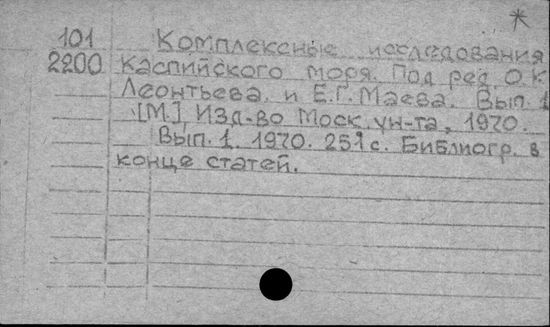 *
101 Комплексные исследования
2200 Каспийского моря. Под ред. О.К.
Леонтьева. и Е.Г. Маева. Вып. 1
[М.], Изд-во Моск. ун-та, 1970.
Вып. 1. 1970. 251 с. Библиогр. в
конце статей.